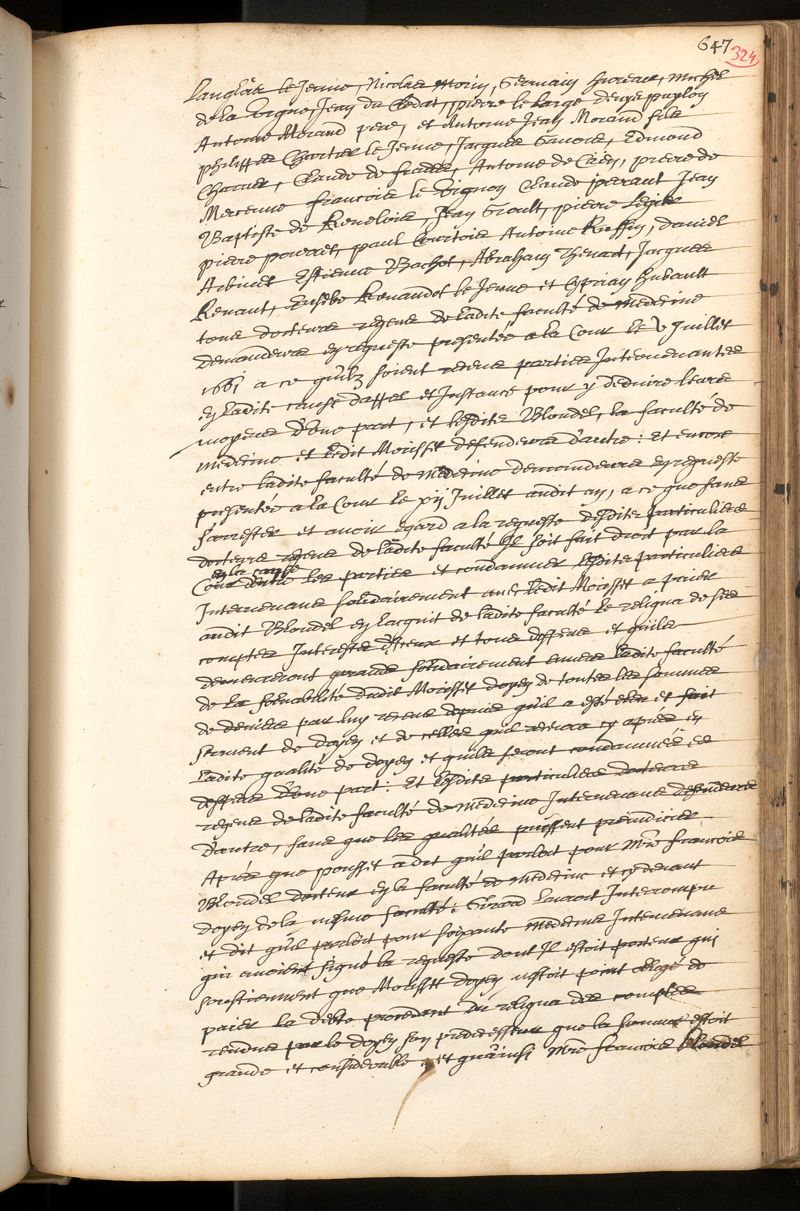 647
324
Langlois le Jeune, Nicolas Morin, Germain hureau, Michel
de la Vigne, Jean du Cledat, pierre le large denys puylon
Antoine Morand pere, et Antoine Jean Morand fils
philippes Chartier le Jeune, Jacques Gavois, Edmond
Charier, Claude de frades, Antoine de Caen, pierre de
Mercenne francois le Vignon Claude perraut Jean
Baptiste de Reneloire, Jean Gioult, pierre Legier
pierre pourret, paul Courtois Antoine Ruffin, daniel
Arbinet Estienne Bachot, Abraham thevart, Jacques
Renaut, Eusebe Renaudot le Jeune et Cyprian hubault
tous docteurs regens de ladite faculté de medecine
demandeurs en requeste presentée a la Cour le v Juillet
1661 a ce qu'ilz soient receus parties Intervenantes
en ladite cause dappel et Instance pour y deduire leurs
moyens d'une part, et lesdits Blondel, la faculté de
medecine et ledit Morisset defendeurs d'autre : Et encore
entre ladite faculté de medecine demanderesse en requeste
presentée a la Cour le xij Juillet audit an, a ce que sans
s'arrester et avoir egard a la requeste desdits particuliers
docteurs regens de ladite faculté Il soit fait droit par la
en la cause
Cour entre les parties et condamner lesdits particuliers
Intervenans solidairement avec ledit Morisset a paier
audit Blondel en lacquit de ladite faculté le reliqua de ses
comptes Interests d'iceux et tous despens et quils
demeureront garands solidairement envers ladite faculté
de la solvabilité dudit Morisset doyen de toutes les sommes
de deniers par luy receus depuis qu'il a esté eleu et fait
serment de doyen et de celles quil recevra cy apres en
ladite qualité de doyen et quils seront condamnés es
despens d'une part : Et lesdits particuliers docteurs
regens de ladite faculté de medecine Intervenans defendeurs
d'autre, sans que les qualités puissent prejudicier
Apres que pousset a dit qu'il parloit pour Mre francois
Blondel docteur en la faculté de medecine et cy devant
doyen de la mesme faculté : Girard Lauroit Interrompu
et dit qu'il parloit pour soixante medecins Intervenans
qui avoient signé la requeste dont Il estoit porteur qui
soustiennent que Morisset doyen n'estoit point obligé de
paier la debte procedant du reliqua des comptes
rendus par le doyen son predecesseur que la somme estoit
grande et considerable, et qu'ainsi Mre francois Blondel